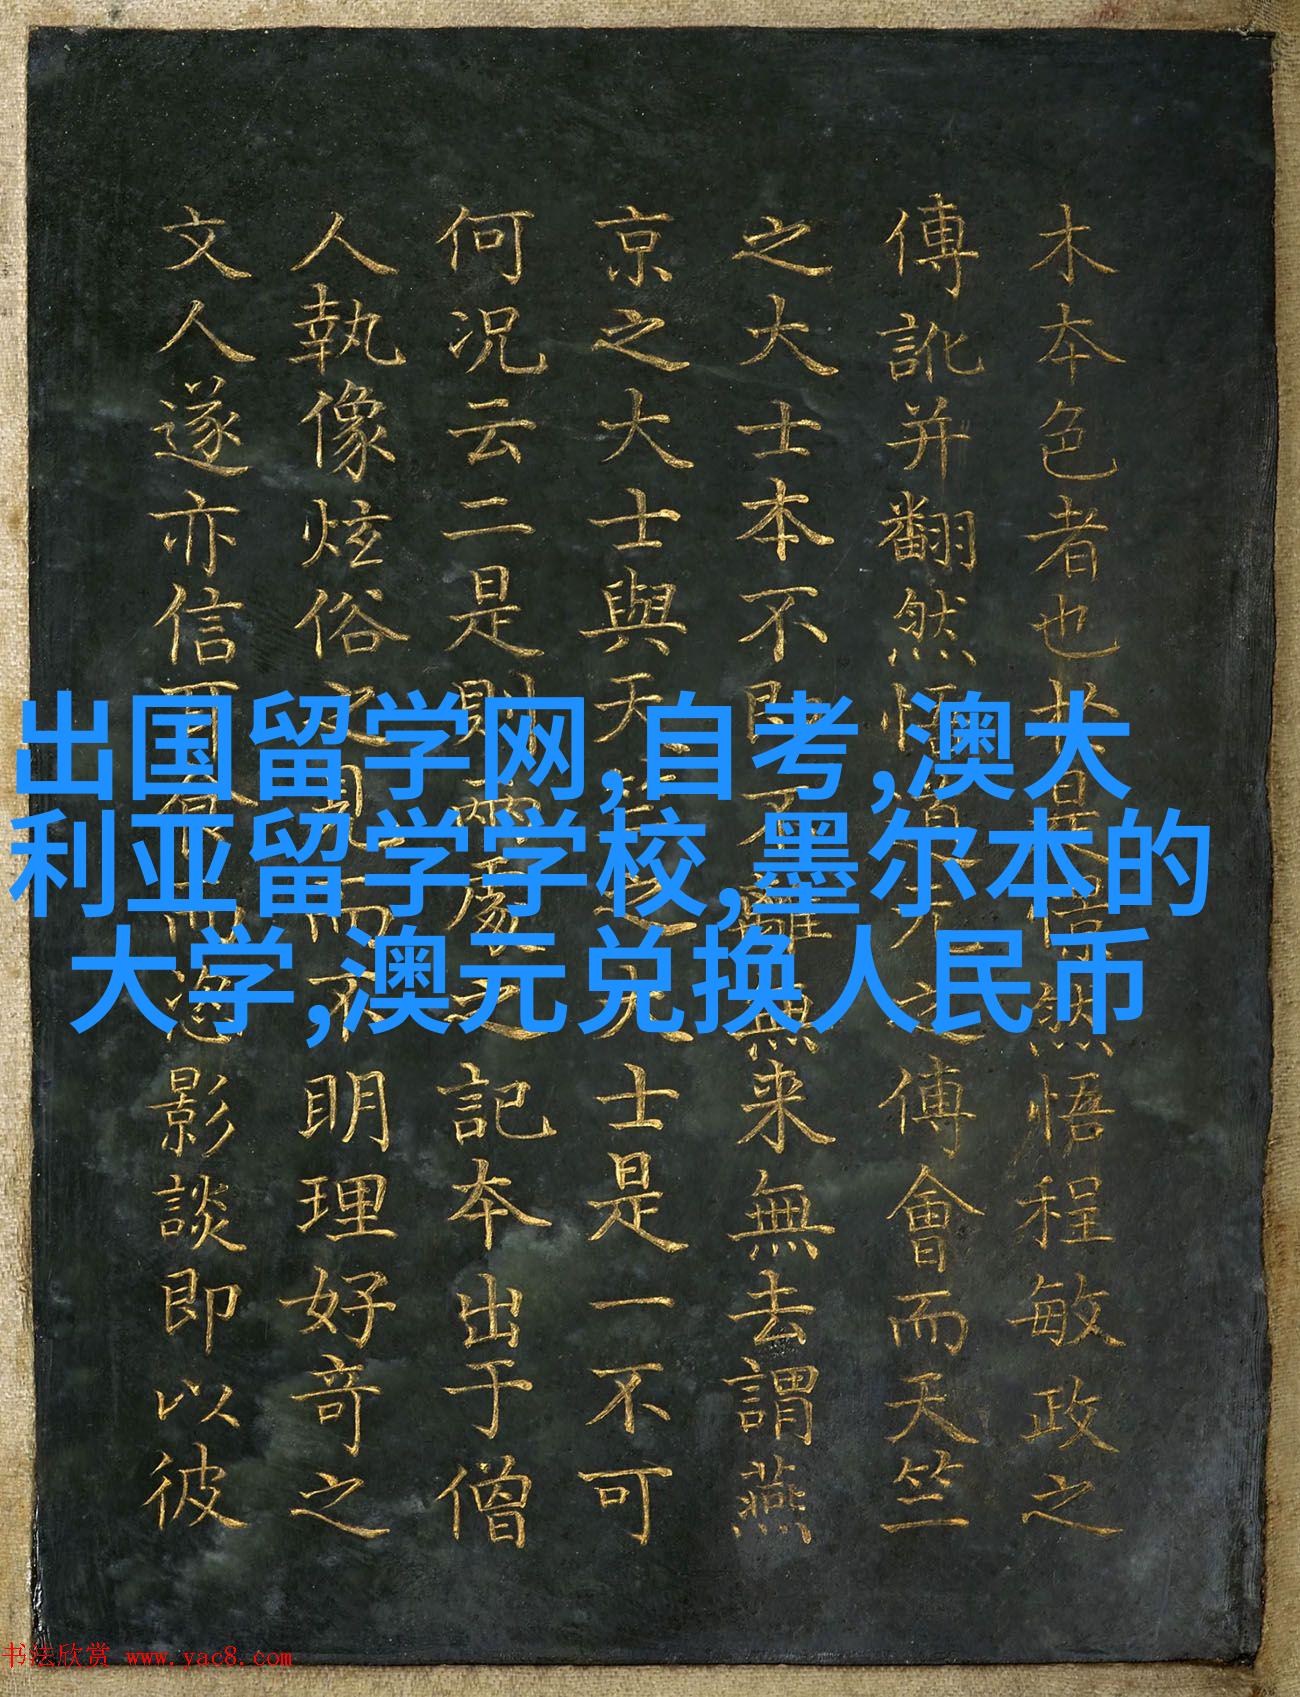 木本色者也此是信然悟程敏政之
傳訛并翻然悟之傅會而天竺
之大士本不即不離無来無去謂燕
京之大士與天竺之大士是一不可
何况云二是則兩處之記本出于僧
人執像炫俗之見而不明理好奇之
文人遂亦信影談即以彼
出国留学网,自考,澳大
利亚留学学校,墨尔本的
大学,澳元兑换人民币
书法欣赏 www.yac8.com